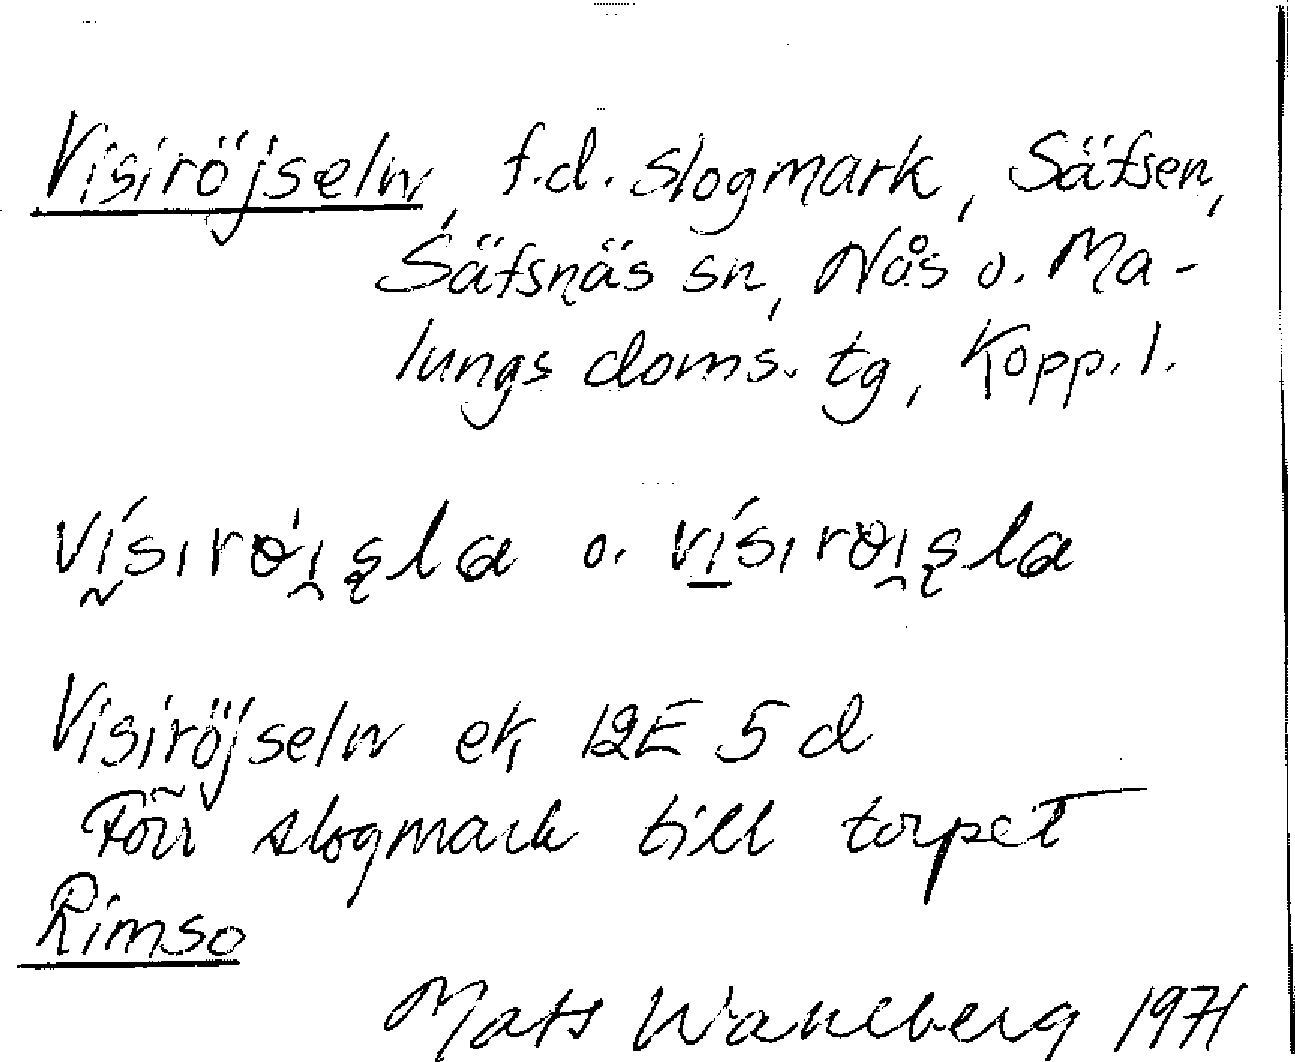 Visiröjseln, f.d. slogmark, Säfsen,
Säfsnäs sn, Nås o. Ma-
lungs doms. tg, Kopp. l.
vísıröı̯şla o. vísıröı̯şla
Visiröjseln ek 12E 5 d
Förr slogmark till torpet
Rimso
Mats Wahlberg 1971